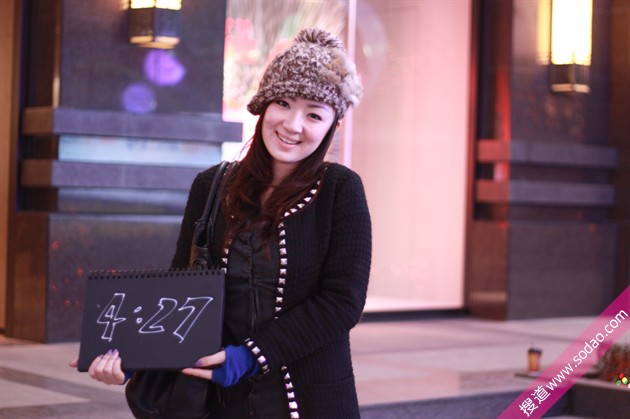 4:27
搜道www.sodao.com